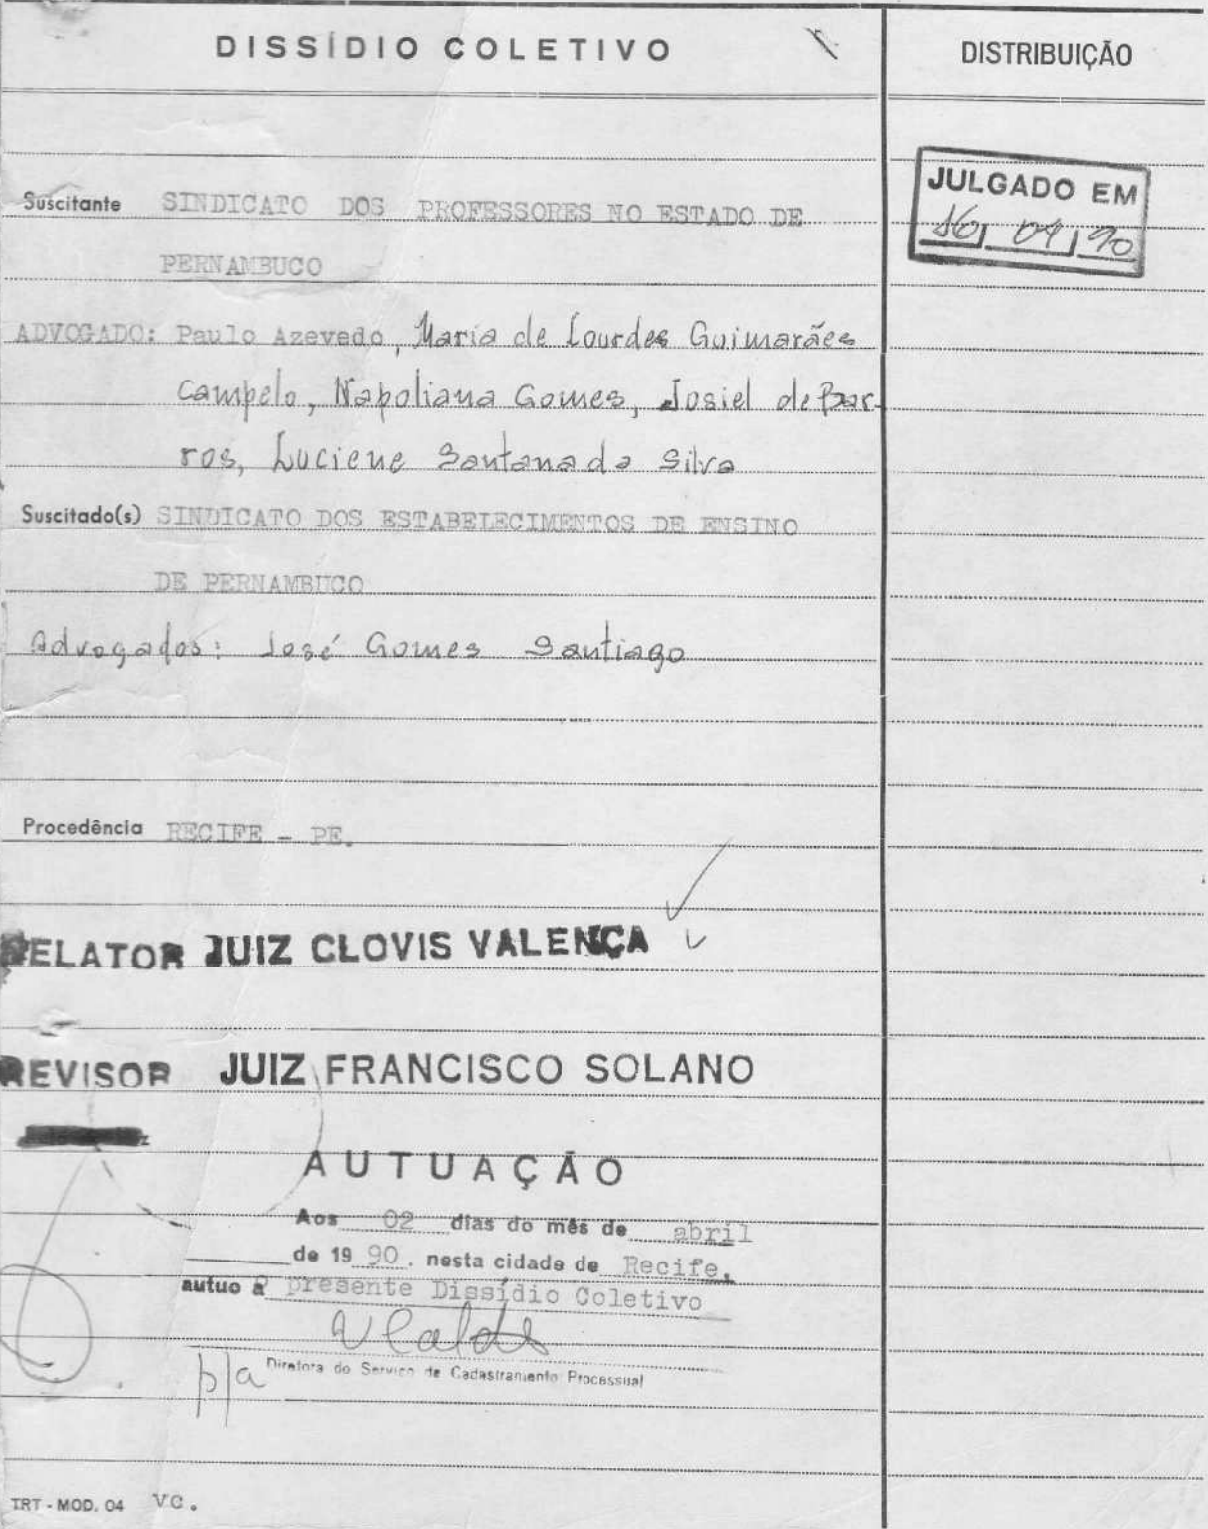 DISSÍDIO COLETIVO
DISTRIBUIÇÃO
JULGADO EM
16/04/90
Suscitante SINDICATO DOS PROFESSORES NO ESTADO DE
PERNAMBUCO
ADVOGADO: Paulo Azevedo, Maria de Lourdes Guimarães
Campelo, Napoliana Gomes, Josiel de Bar-
ros, Luciene Santana da Silva
Suscitado(s) SINDICATO DOS ESTABELECIMENTOS DE ENSINO
DE PERNAMBUCO
Advogados: José Gomes Santiago
Procedência RECIFE - PE.
RELATOR JUIZ CLOVIS VALENÇA
REVISOR JUIZ FRANCISCO SOLANO
AUTUAÇÃO
Aos 02 dias do mês de abril
de 19 90, nesta cidade de Recife,
autuo o presente Dissídio Coletivo
p/a Diretora do Serviço de Cadastramento Processual
TRT - MOD. 04 VC.